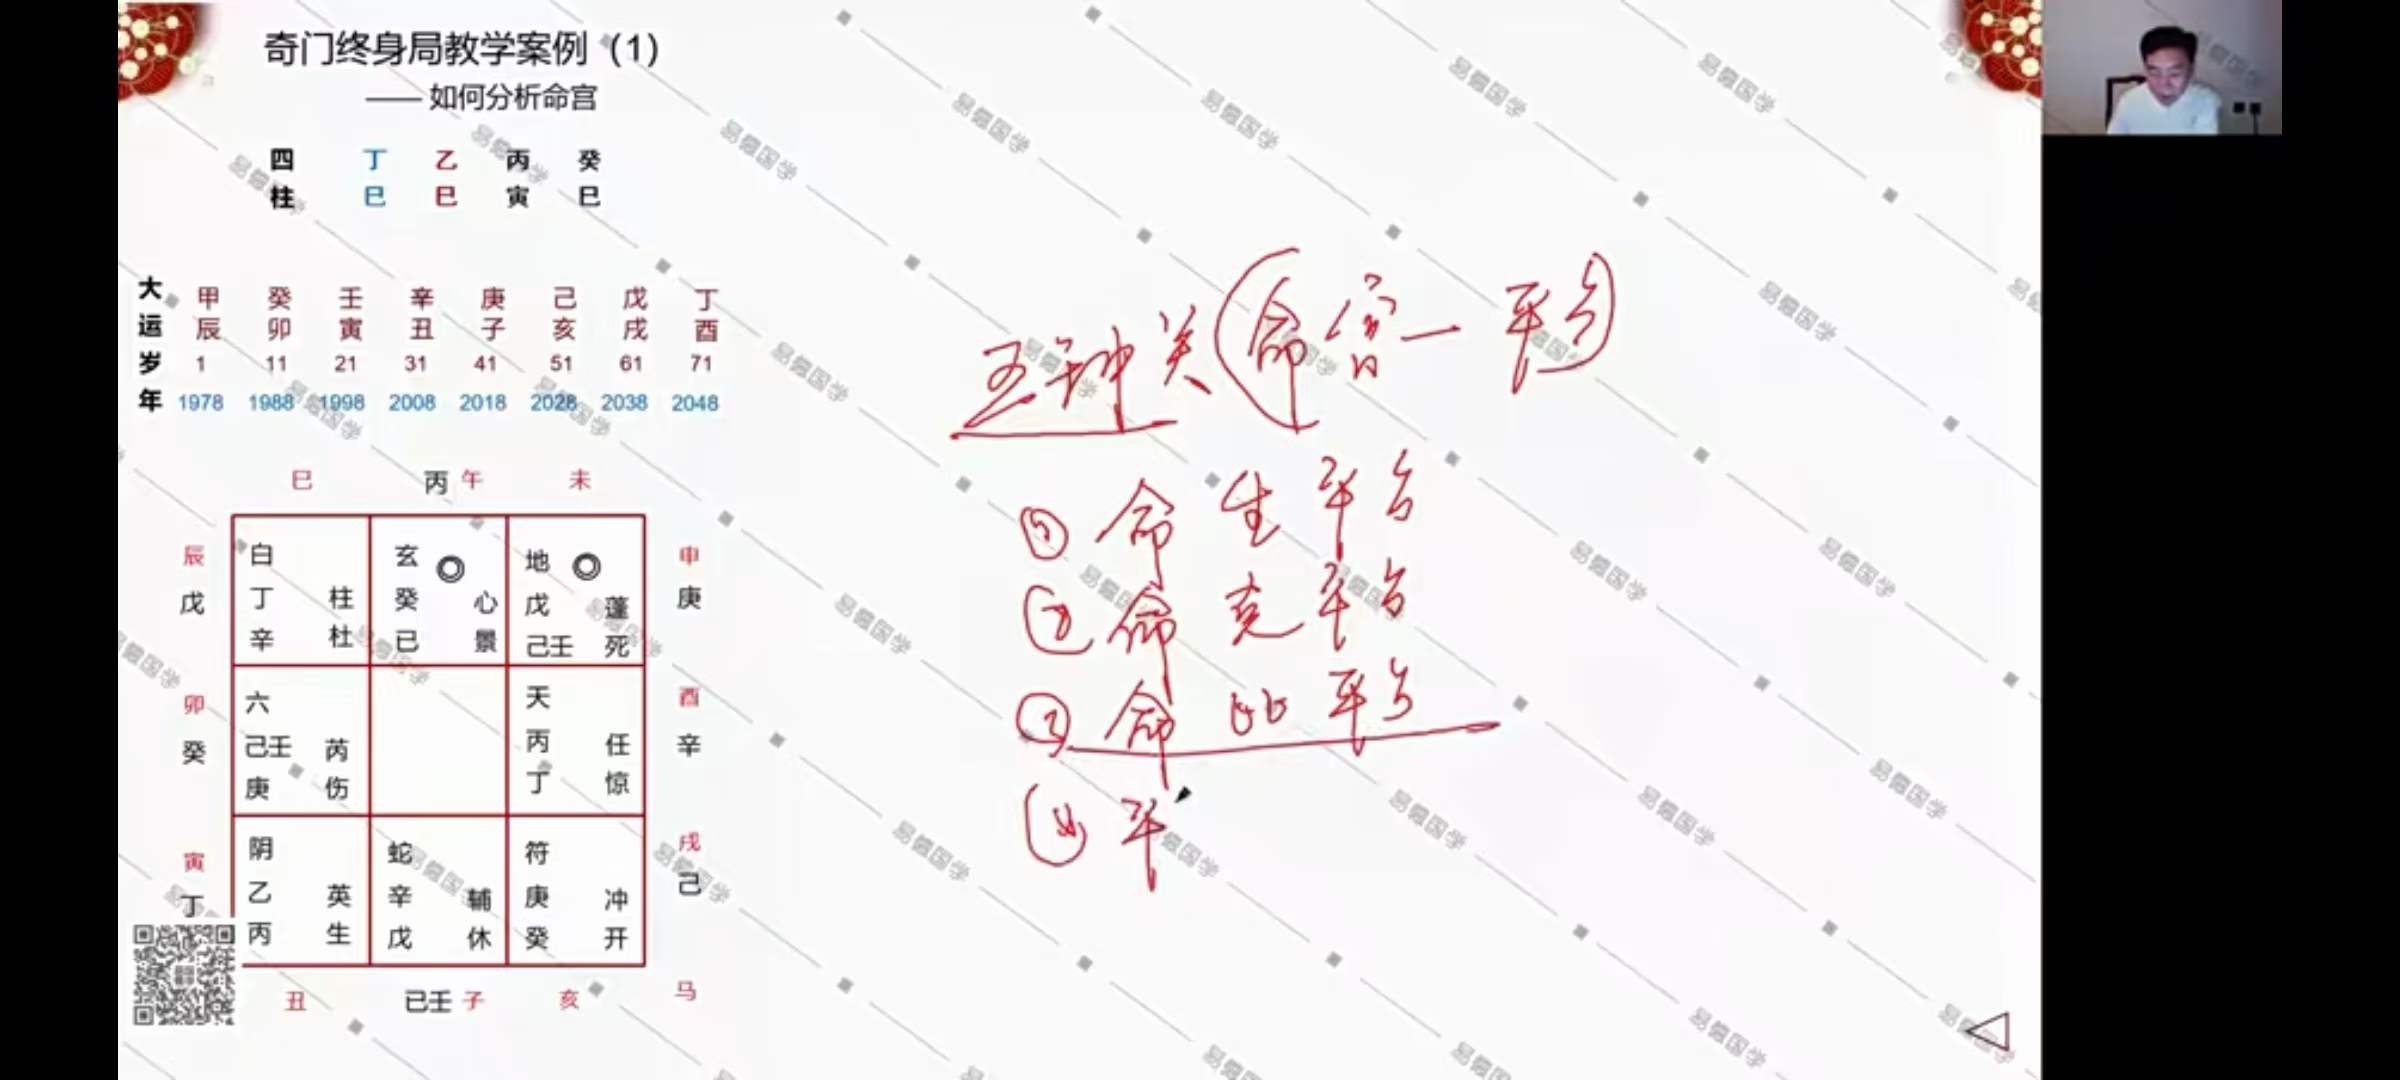 奇门终身局教学案例（1）
—— 如何分析命宫
四 丁 乙 丙 癸
柱 巳 巳 寅 巳
大 甲 癸 壬 辛 庚 己 戊 丁
运 辰 卯 寅 丑 子 亥 戌 酉
岁 1 11 21 31 41 51 61 71
年 1978 1988 1998 2008 2018 2028 2038 2048
巳 丙 午 未
辰 白 玄 地 申
戊 丁 柱 癸 心 戊 蓬 庚
辛 杜 己 景 己壬 死
卯 六 天 酉
癸 己壬 芮 丙 任 辛
庚 伤 丁 惊
寅 阴 蛇 符 戌
丁 乙 英 辛 辅 庚 冲 己
丙 生 戊 休 癸 开
丑 己壬 子 亥 马
五种关 命宫一平台
① 命生平台
② 命克平台
③ 命比平台
④ 平
易儒国学